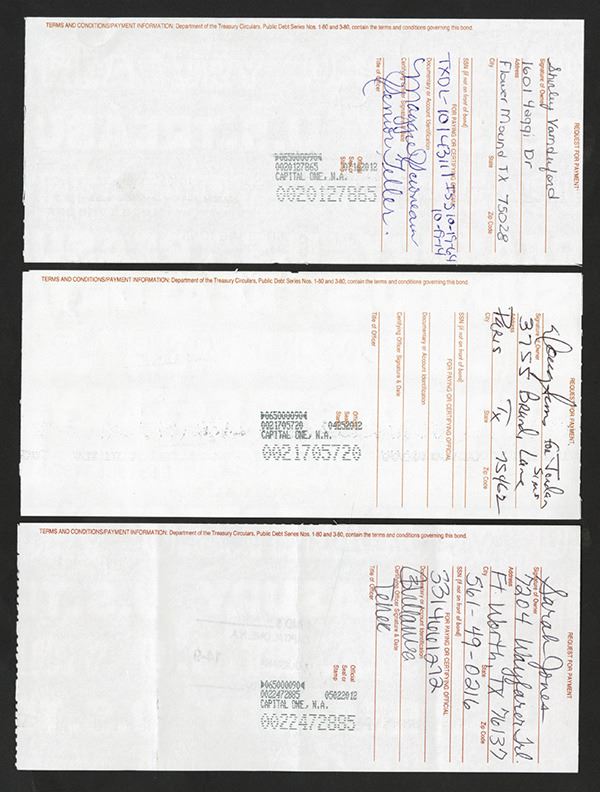 TERMS AND CONDITIONS/PAYMENT INFORMATION: Department of the Treasury Circulars, Public Debt Series Nos. 1-80 and 3-80, contain the terms and conditions governing this bond.
REQUEST FOR PAYMENT
Shirley
Signature of Owner
1601 Dr
Address
Flower Mound TX 75028
City State Zip Code
SSN (if not on front of bond)
FOR PAYING OR CERTIFYING OFFICIAL
TXDL-10143111
Documentary or Account Identification
Maggie
Certifying Officer Signature & Date
Senior Teller
Title of Officer
Official
Seal or
Stamp
065000090
0020127865 2012
CAPITAL ONE, N.A.
0020127865
TERMS AND CONDITIONS/PAYMENT INFORMATION: Department of the Treasury Circulars, Public Debt Series Nos. 1-80 and 3-80, contain the terms and conditions governing this bond.
REQUEST FOR PAYMENT
Sims for Jordan
Sims
Signature of Owner
3755 Lane
Address
Paris Tx 75462
City State Zip Code
SSN (if not on front of bond)
FOR PAYING OR CERTIFYING OFFICIAL
Documentary or Account Identification
Certifying Officer Signature & Date
Title of Officer
Official
Seal or
Stamp
065000090
0021705720 04252012
CAPITAL ONE, N.A.
0021705720
TERMS AND CONDITIONS/PAYMENT INFORMATION: Department of the Treasury Circulars, Public Debt Series Nos. 1-80 and 3-80, contain the terms and conditions governing this bond.
REQUEST FOR PAYMENT
Sarah Jones
Signature of Owner
7204 Wayfarer Trl.
Address
Ft. Worth TX 76137
City State Zip Code
561-49-0216
SSN (if not on front of bond)
FOR PAYING OR CERTIFYING OFFICIAL
Documentary or Account Identification
Certifying Officer Signature & Date
Teller
Title of Officer
Official
Seal or
Stamp
065000090
0022472885 05022012
CAPITAL ONE, N.A.
0022472885